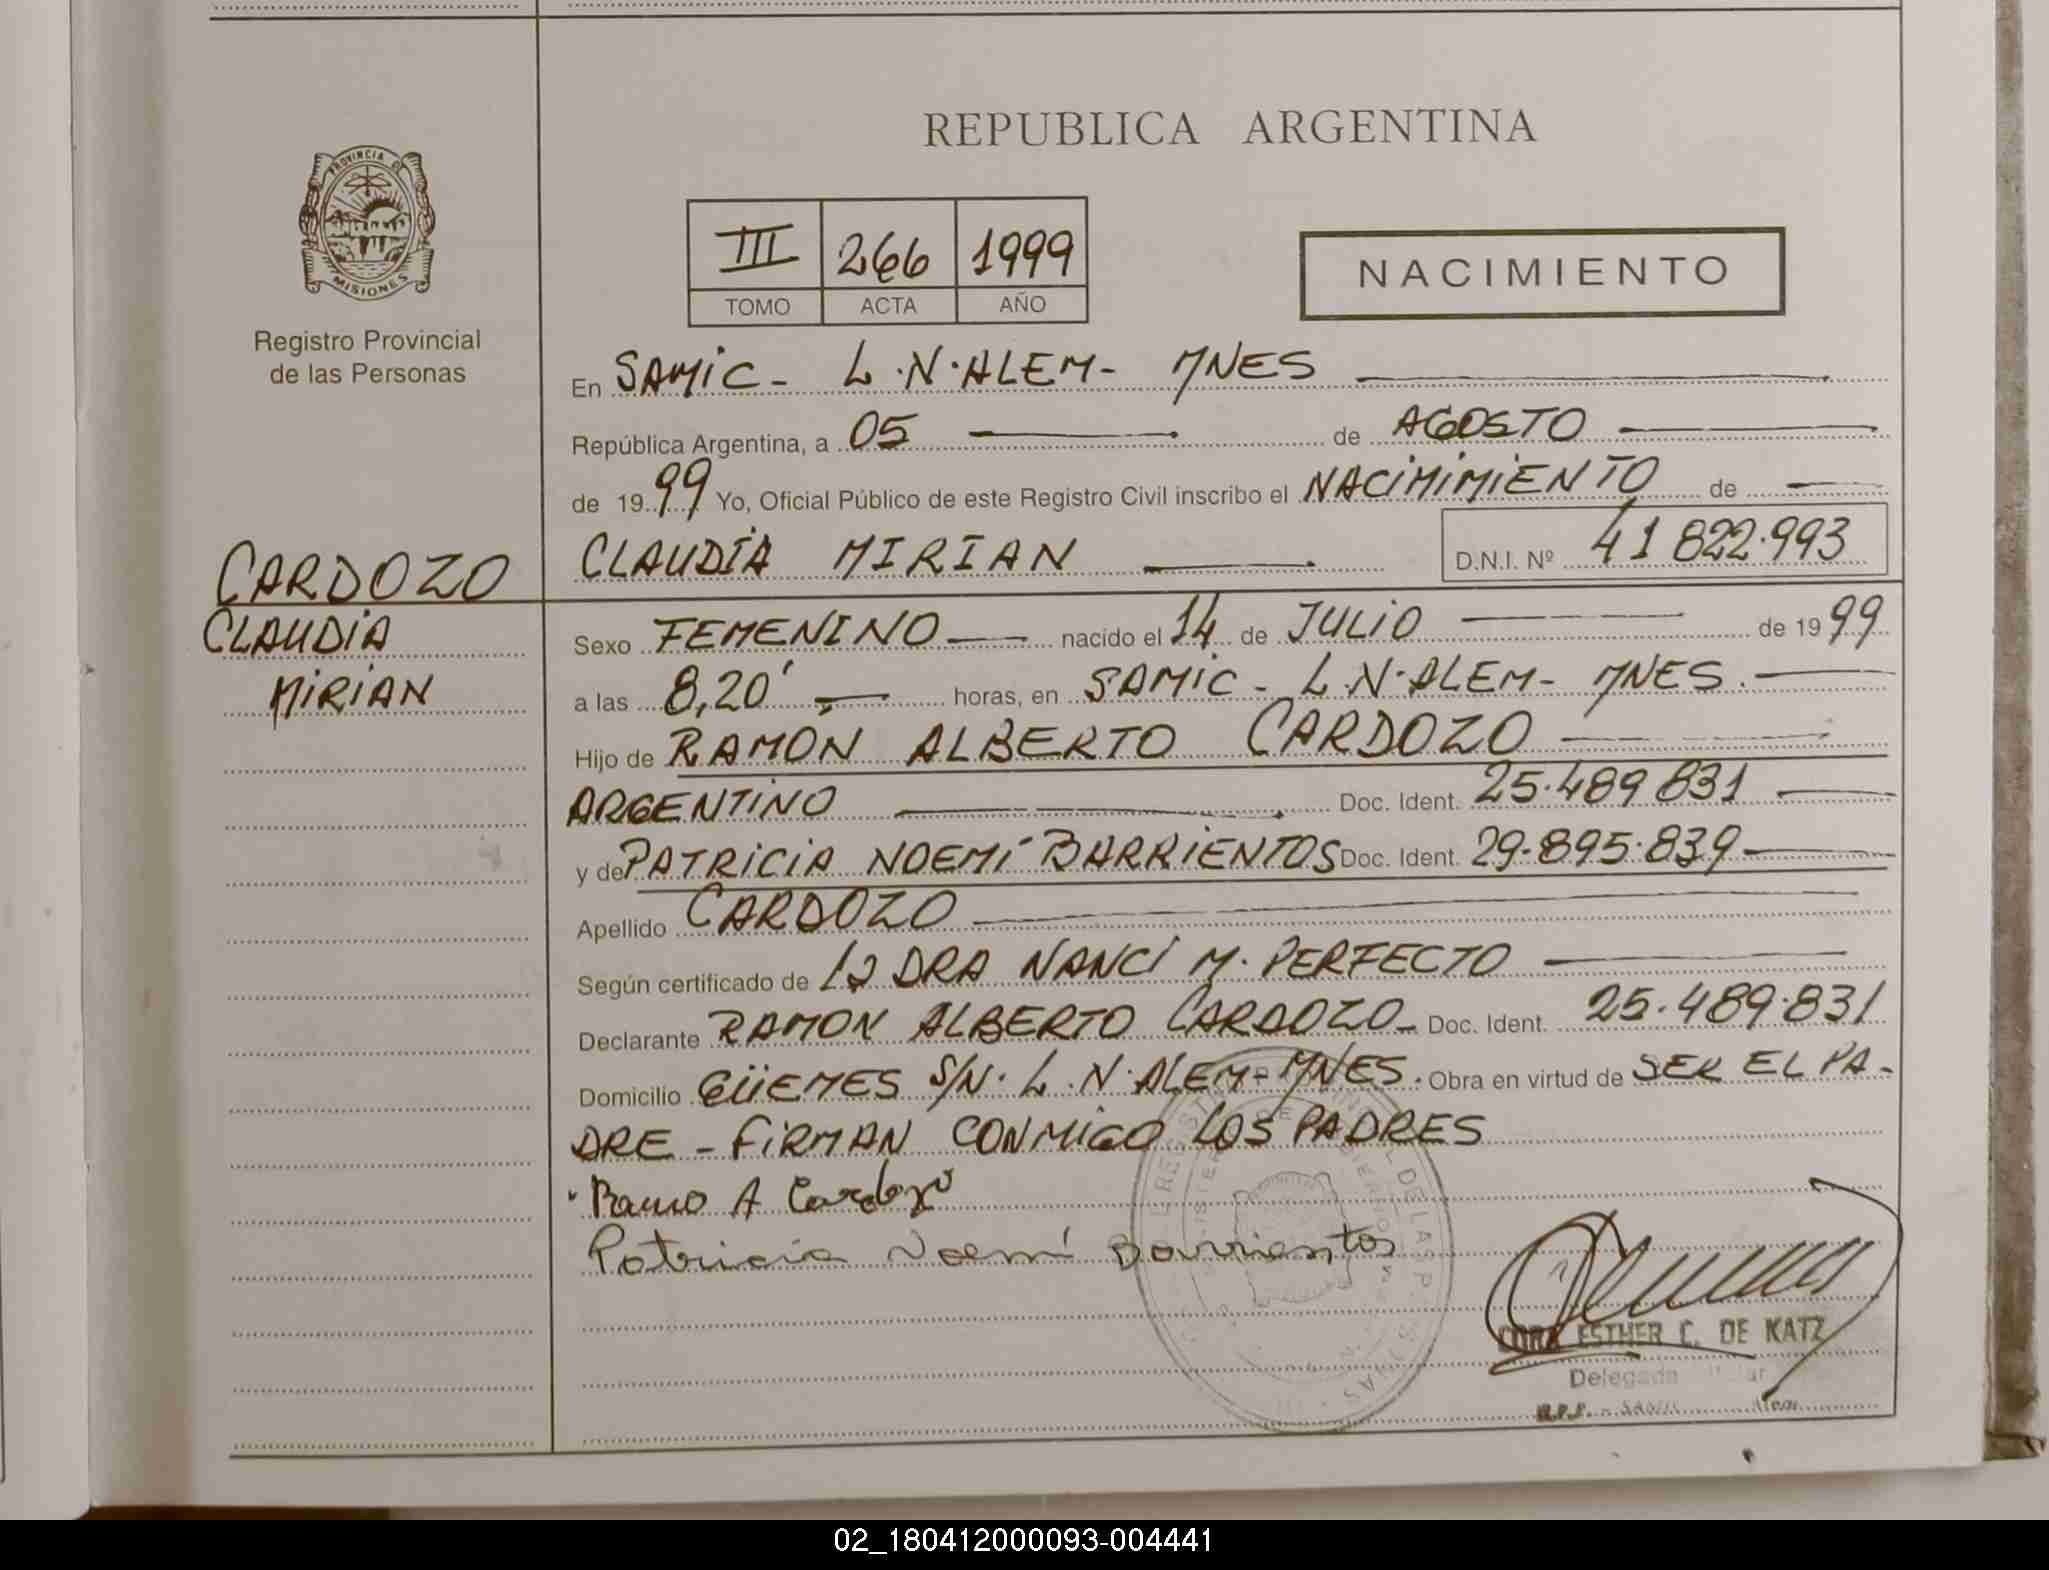 REPUBLICA ARGENTINA
PROVINCIA DE
MISIONES
Registro Provincial
de las Personas
III 266 1999
TOMO ACTA AÑO
NACIMIENTO
En SAMIC - L.N.ALEM - MNES
República Argentina, a 05 de AGOSTO
de 1999 Yo, Oficial Público de este Registro Civil inscribo el NACIMIMIENTO de
CLAUDIA MIRIAN D.N.I. Nº 41822.993
CARDOZO
CLAUDIA
MIRIAN
Sexo FEMENINO nacido el 14 de JULIO de 1999
a las 8,20' horas, en SAMIC - L.N.ALEM - MNES.
Hijo de RAMÓN ALBERTO CARDOZO
ARGENTINO Doc. Ident. 25.489831
y de PATRICIA NOEMÍ BARRIENTOS Doc. Ident. 29.895.839
Apellido CARDOZO
Según certificado de la DRA NANCI M. PERFECTO
Declarante RAMON ALBERTO CARDOZO Doc. Ident. 25.489.831
Domicilio GÜEMES S/N. L.N.ALEM - MNES. Obra en virtud de SER EL PA-
DRE - FIRMAN CONMIGO LOS PADRES
Ramo A Cardozo
Patricia Noemí Barrientos
CORA ESTHER C. DE KATZ
Delegada
02_180412000093-004441